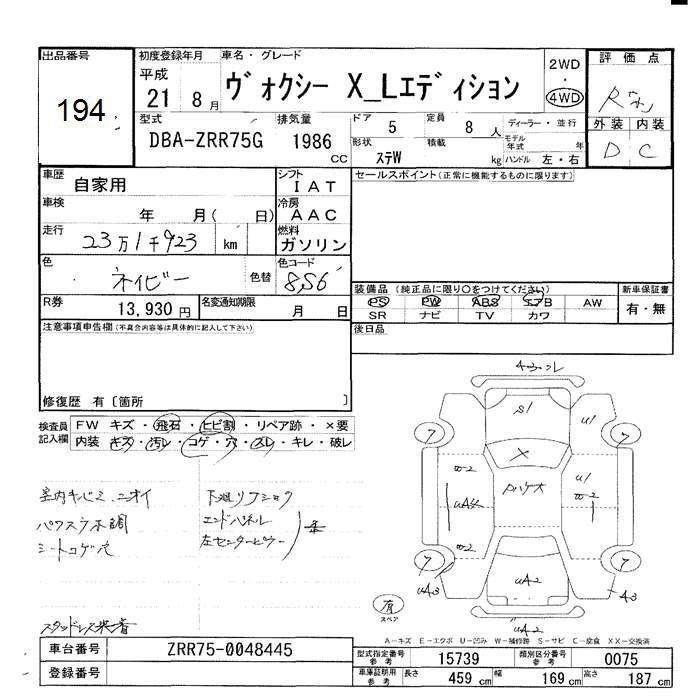 出品番号
194
初度登録年月
平成
21 8月
車名・グレード
ヴォクシー X_Lエディション
2WD
・
4WD
評価点
外装 内装
D C
型式
DBA-ZRR75G
排気量
1986
cc
ドア
5
定員
8人
ディーラー・並行
形状
ステW
積載
kg
モデル年式 年
ハンドル 左・右
車歴
自家用
シフト
IAT
車検
年 月( 日)
冷房
AAC
走行
23万1千923 km
燃料
ガソリン
色
ネイビー
色替
色コード
8S6
R券
13,930円
名変通知期限
月 日
セールスポイント(正常に機能するものに限ります)
装備品(純正品に限り○をつけてください)
PS PW ABS エアB AW
SR ナビ TV カワ
新車保証書
有・無
後日品
注意事項申告欄(不具合内容等は具体的に記入して下さい)
修復歴 有〔箇所 〕
検査員記入欄
FW キズ・飛石・ヒビ割・リペア跡・×要
内装 キズ・汚レ・コゲ・穴・スレ・キレ・破レ
室内キバミ、ニオイ
パワスラ不調
シートコゲ穴
下廻リ
エンドパネル
左センターピラー
スタッドレス装着
S1
U1
7
7
X
W-2
U1
W-2
W-2
UA2
UA3
7
7
43
UA2
有
スペア
A-キズ E-エクボ U-凹み W-補修跡 S-サビ C-腐食 XX-交換済
車台番号
ZRR75-0048445
登録番号
型式指定番号 参考
15739
類別区分番号 参考
0075
車庫証明用 参考
長さ 459 cm
幅 169 cm
高さ 187 cm